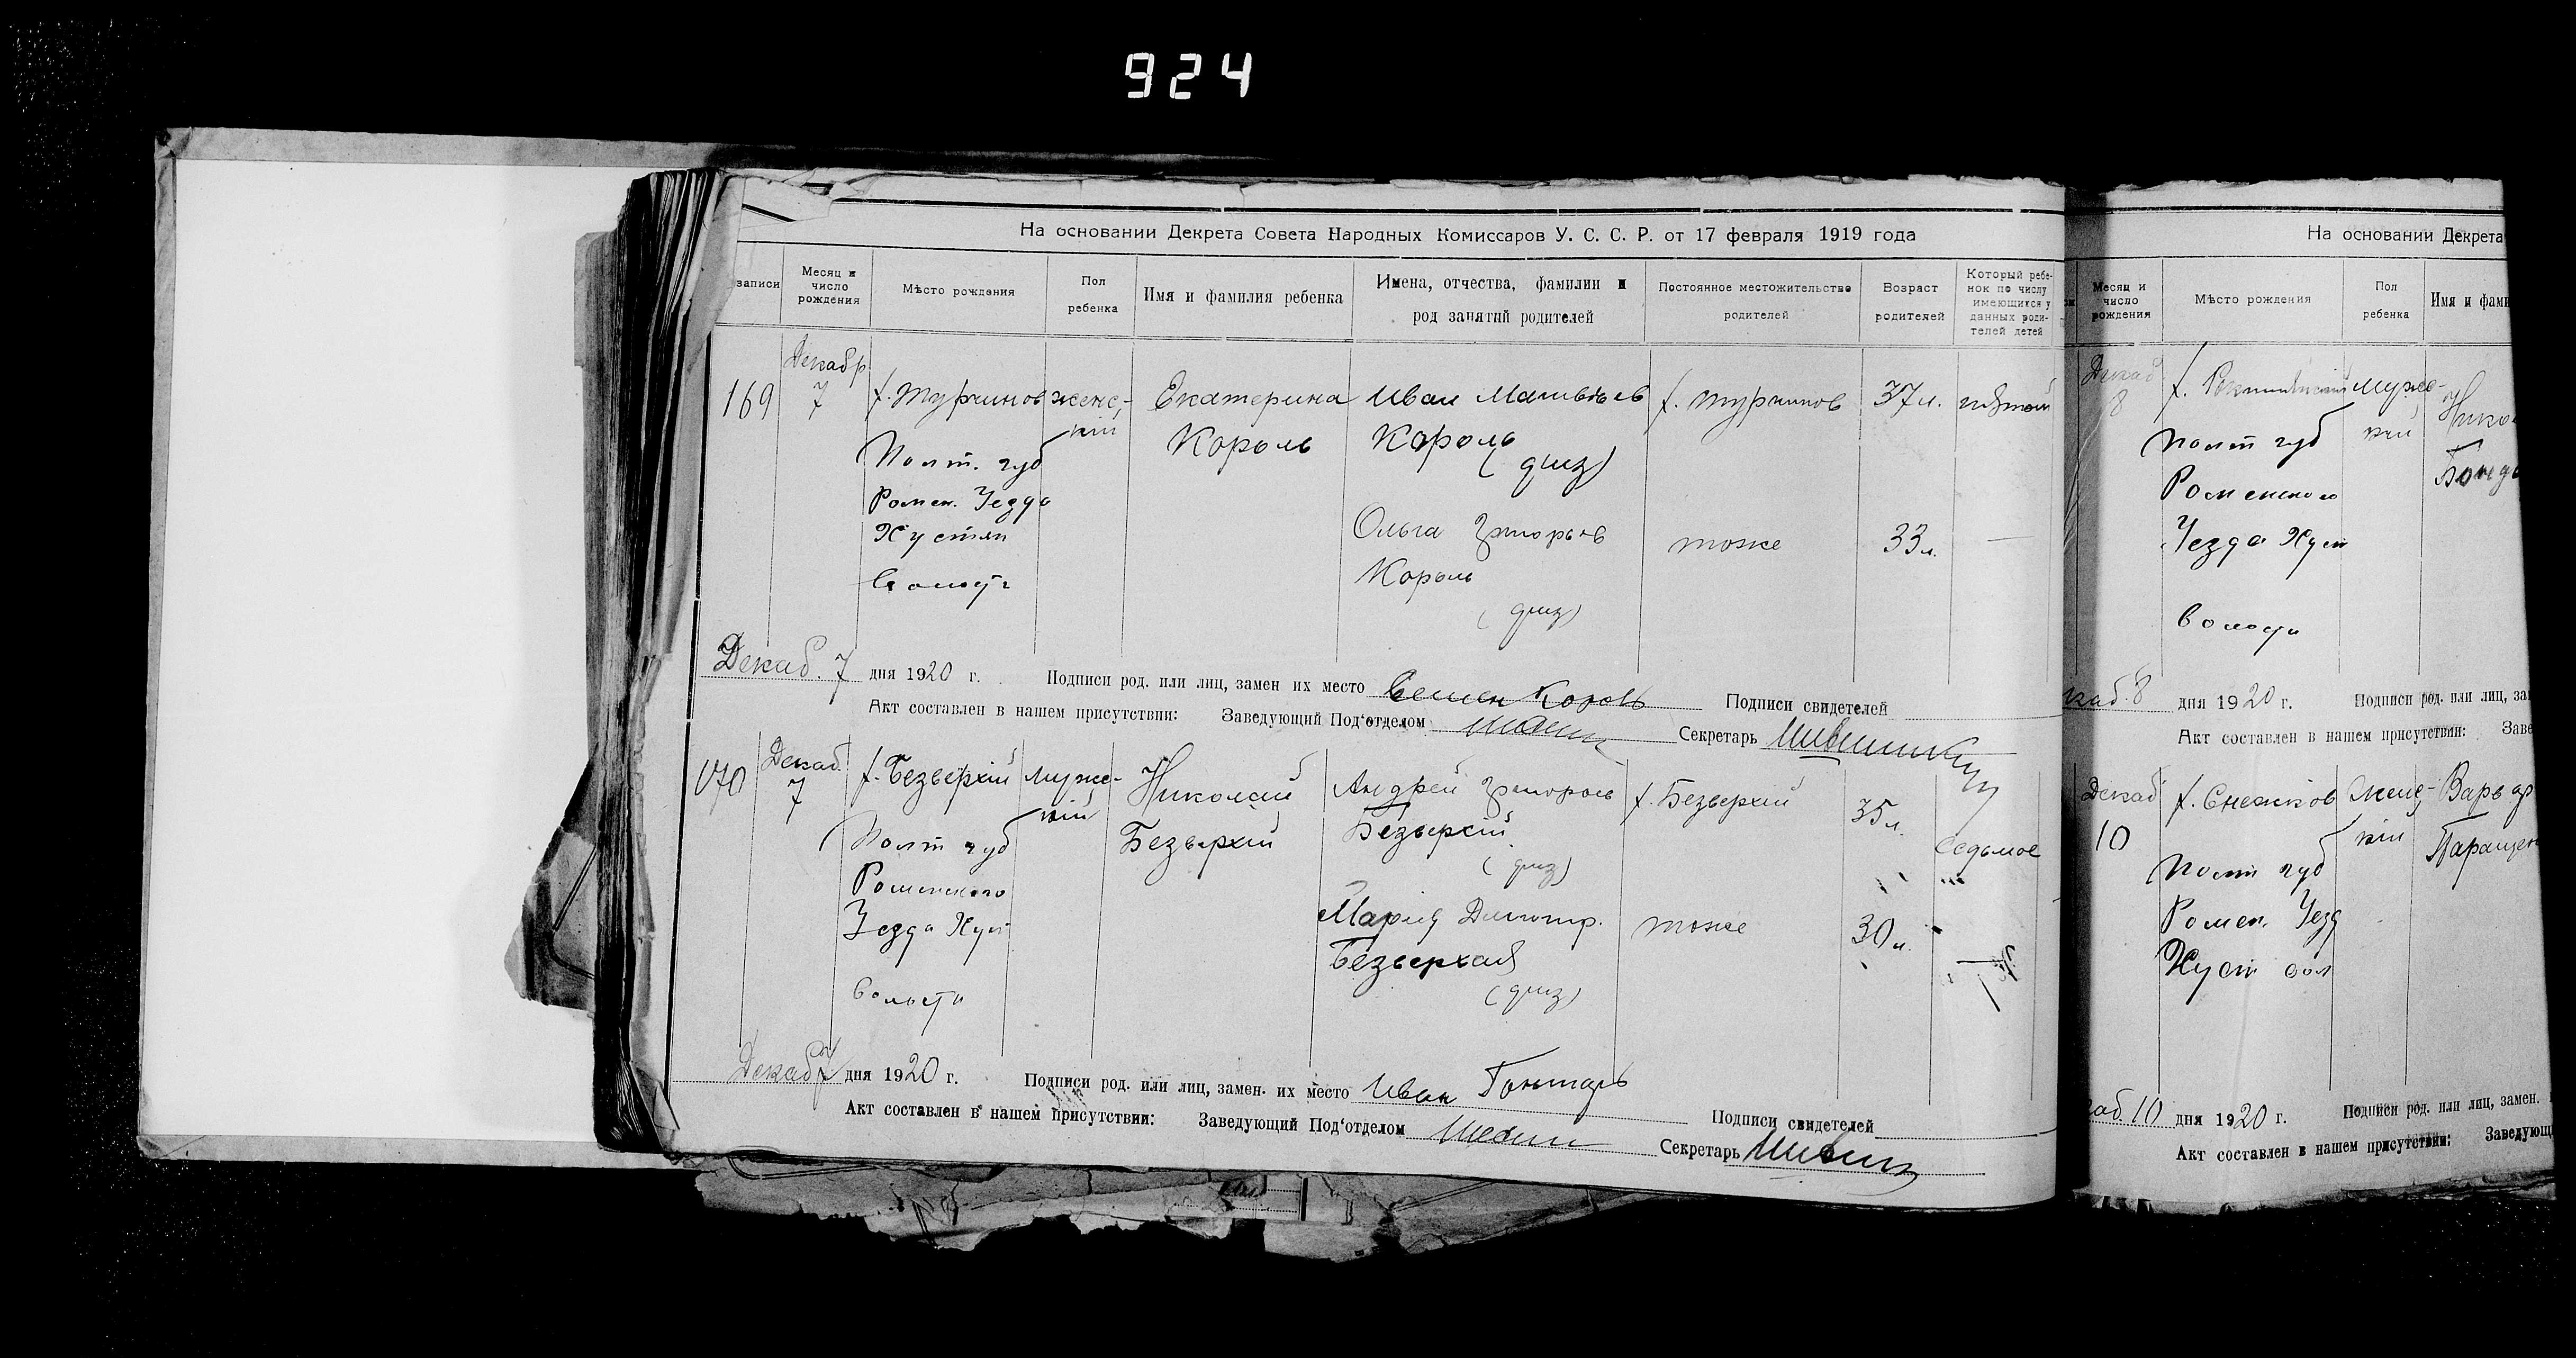 924
На основании Декрета Совета Народных Комиссаров У. С. С. Р. от 17 февраля 1919 года
записи
Месяц и число рождения
Мѣсто рождения
Пол ребенка
Имя и фамилия ребенка
Имена, отчества, фамилии и род занятий родителей
Постоянное местожительство родителей
Возраст родителей
Который ребенок по числу имеющихся у данных родителей детей
169
Декабр
7
х. Турчинов
Полт. губ
Ромен. Уезда
Хустян
Волости
женс-
кій
Екатерина
Король
Иван Матвѣев
Король
Ольга
Король
х. Турчинов
тоже
37 л.
33 л.
пятой
Декаб. 7 дня 1920 г. Подписи род. или лиц, замен их место Семен Король Подписи свидетелей
Акт составлен в нашем присутствии: Заведующий Под'отделом
Секретарь
170
Декаб.
7
х. Безверхій
Полт губ
Роменского
Уезда Хуст
Волости
Мужс-
кій
Николай
Безверхій
Андрей
Безверхій
Мария Дмитр.
Безверхая
х. Безверхій
тоже
35 л.
30 л.
седьмое
Декаб 7 дня 1920 г. Подписи род. или лиц, замен. их место Иван Гонтарь
Подписи свидетелей
Акт составлен в нашем присутствии: Заведующий Под'отделом
Секретарь
На основании Декрета
Месяц и число рождения
Мѣсто рождения
Пол ребенка
Имя и фами
Декаб
8
Полт губ
Роменского
Уезда Хуст
Волости
Мужс-
кій
Нико
Бонда
каб. 8 дня 1920 г. Подписи род. или лиц, за
Акт составлен в нашем присутствии: Заве
Декаб
10
х. Снежков
Полт губ
Ромен. Уезд
Хуст вол
Женс-
кій
Варвар
Паращен
каб. 10 дня 1920 г. Подписи род. или лиц, замен.
Акт составлен в нашем присутствии: Заведующ